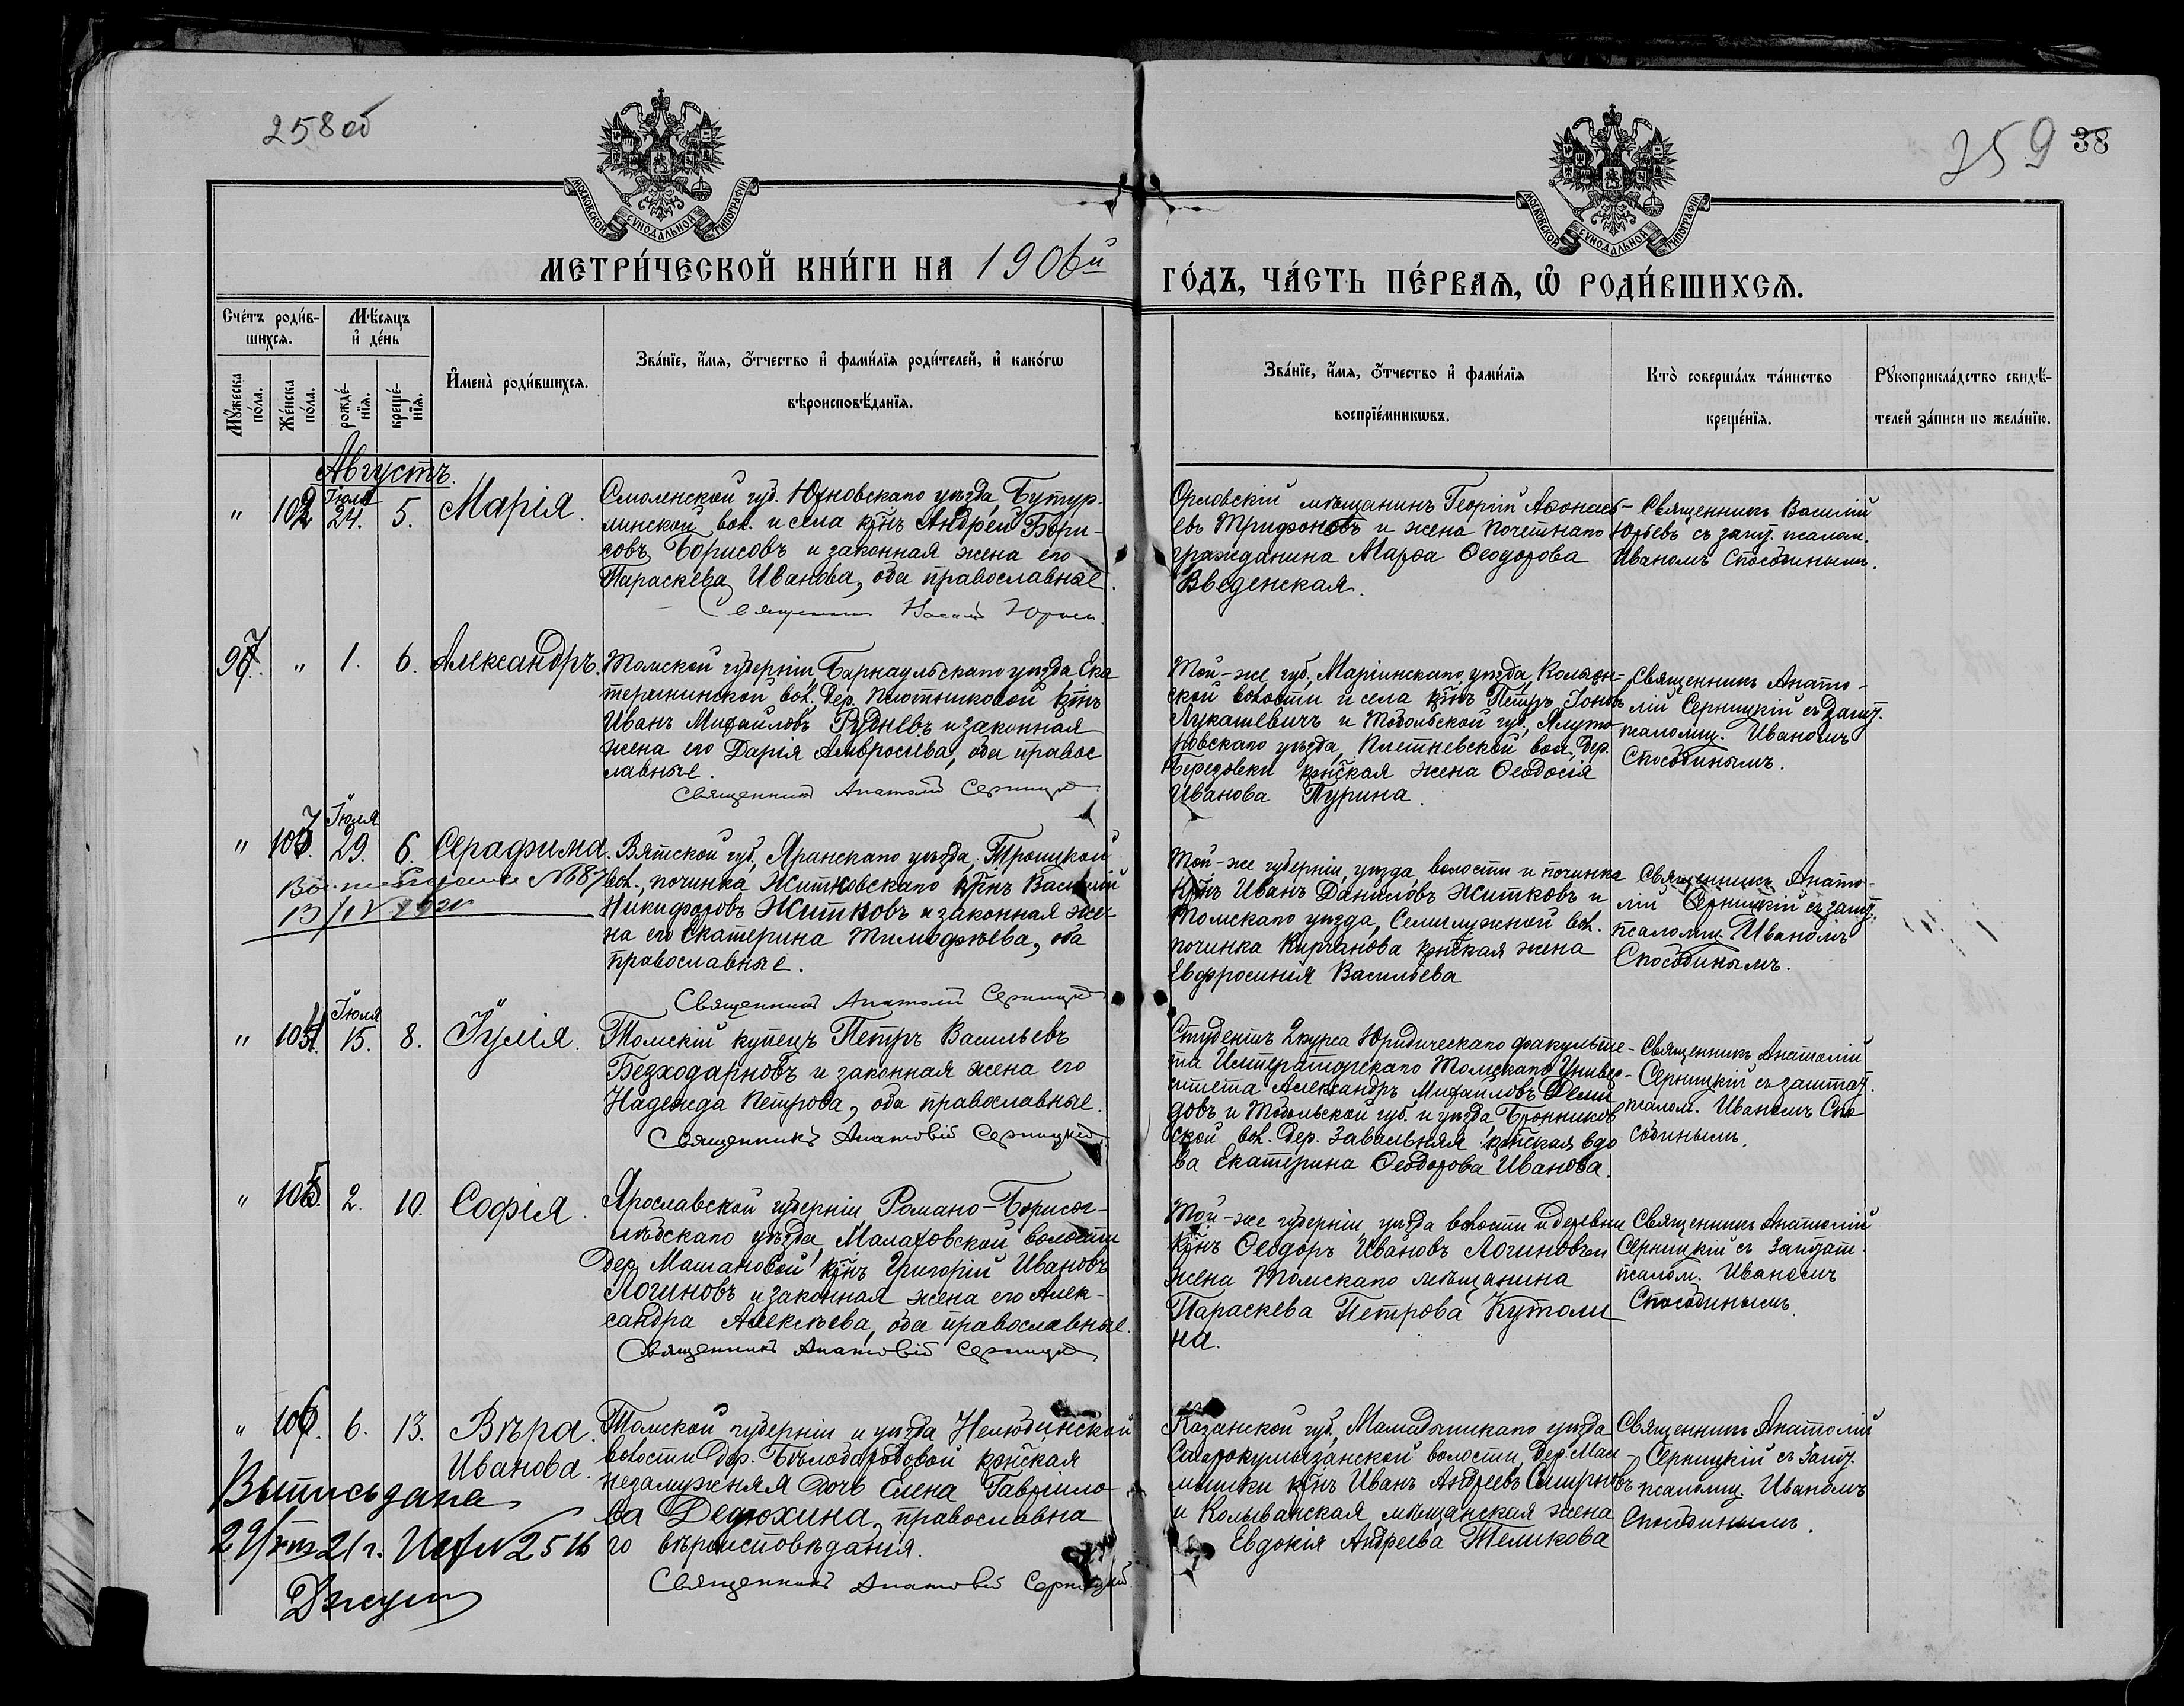 258 об
259 38
МОСКОВСКОЙ СѴНОДАЛЬНОЙ ТИПОГРАФІИ
МОСКОВСКОЙ СѴНОДАЛЬНОЙ ТИПОГРАФІИ
МЕТРИ́ЧЕСКОЙ КНИ́ГИ НА 1906й
ГО́ДЪ, ЧА́СТЬ ПЕ́РВАѦ, Ѽ РОДИ́ВШИХСѦ.
Сче́тъ роди́в-
шихсѧ.
Мѣ́сѧцъ
и҆ де́нь
Мꙋ́жеска
по́ла.
Же́нска
по́ла.
рожде́-
нїѧ.
креще́-
нїѧ.
И҆мена̀ роди́вшихсѧ.
Зва́нїе, и҆́мѧ, ѻ҆́тчество и҆ фами́лїѧ роди́телей, и҆ како́гѡ
вѣроисповѣ́данїѧ.
Зва́нїе, и҆́мѧ, ѻ҆́тчество и҆ фами́лїѧ
воспрїе́мникѡвъ.
Кто̀ соверша́лъ та́инство
креще́нїѧ.
Рꙋкоприкла́дство свидѣ́-
телей за́писи по жела́нїю.
Августъ.
" 102 Іюля 24. 5. Марія.
Смоленской губ. Юхновскаго уѣзда, Бутур-
линской вол. и села крнъ Андрей Бори-
совъ Борисовъ и законная жена его
Параскева Иванова, оба православные.
Священникъ Василій Юрьевъ
Орловскій мѣщанинъ Георгій Аѳонась-
евъ Трифоновъ и жена Почетнаго
гражданина Марѳа Ѳеодорова
Введенская.
Священникъ Василій
Юрьевъ съ зашт. псалом.
Иваномъ Способинымъ.
97. " 1. 6. Александръ.
Томской губерніи, Барнаульскаго уѣзда Ека
терининской вол. Дер. Плотниковой крнъ
Иванъ Михаиловъ Рудневъ и законная
жена его Дарія Амвросіева, оба правос
лавные.
Священникъ Анатолій Серницкій
Той-же губ., Маріинскаго уѣзда, Колыон-
ской волости и села крнъ Петръ Іоновъ
Лукашевичъ и Тобольской губ., Ялуто-
ровскаго уѣзда, Плетневской вол., дер.
Березовки крнская жена Ѳеодосія
Иванова Пурина.
Священникъ Анато-
лій Серницкій съ зашт.
псаломщ. Иваномъ
Способинымъ.
" 103. Іюля 29. 6. Серафима.
№ 87
Вятской губ., Яранскаго уѣзда, Троицкой
вол., починка Житковскаго крнъ Василій
Никифоровъ Житковъ и законная же-
на его Екатерина Тимофѣева, оба
православные.
Священникъ Анатолій Серницкій
Той-же губерніи, уѣзда волости и починка
крнъ Иванъ Даниловъ Житковъ и
Томскаго уѣзда, Семилужной вол.
починка Кирганова крнская жена
Евфросинія Васильева
Священникъ Анато-
лій Серницкій съ зашт.
псаломщ. Иваномъ
Способинымъ.
" 104. Іюля 15. 8. Іулія.
Томскій купецъ Петръ Васильевъ
Безходарновъ и законная жена его
Надежда Петрова, оба православные.
Священникъ Анатолій Серницкій
Студентъ 2 курса Юридическаго факульте-
та Императорскаго Томскаго Универ-
ситета Александръ Михаиловъ Деми
довъ и Тобольской губ. и уѣзда, Бронников
ской вол. Дер. Завальняя крнская вдо
ва Екатерина Ѳеодорова Иванова.
Священникъ Анатолій
Серницкій съ заштат.
псалом. Иваномъ Спо
собинымъ.
" 105. 2. 10. Софія.
Ярославской губерніи Романо-Борисог-
лѣбскаго уѣзда, Малаховской волости
Дер. Машановой крнъ Григорій Ивановъ
Логиновъ и законная жена его Алек-
сандра Алексѣева, оба православные.
Священникъ Анатолій Серницкій
Той-же губерніи, уѣзда волости и деревни
крнъ Ѳеодоръ Ивановъ Логиновъ и
жена Томскаго мѣщанина
Параскева Петрова Кутоли
на.
Священникъ Анатолій
Серницкій съ заштат.
псалом. Иваномъ
Способинымъ.
" 106. 6. 13. Вѣра
Иванова.
Выпись дана
21 г. № 2516
Томской губерніи и уѣзда Нелюбинской
волости Дер. Бѣлобородовой крнская
незамужняя дочь Елена Гаврило
ва Дедюхина, православна
го вѣроисповѣданія.
Священникъ Анатолій Серницкій
Казанской губ., Мамадышскаго уѣзда
волости, Дер.
крнъ Иванъ Андреевъ Смирновъ
и Колыванская мѣщанская жена
Евдокія Андреева Теликова
Священникъ Анатолій
Серницкій съ зашт.
псаломщ. Иваномъ
Способинымъ.